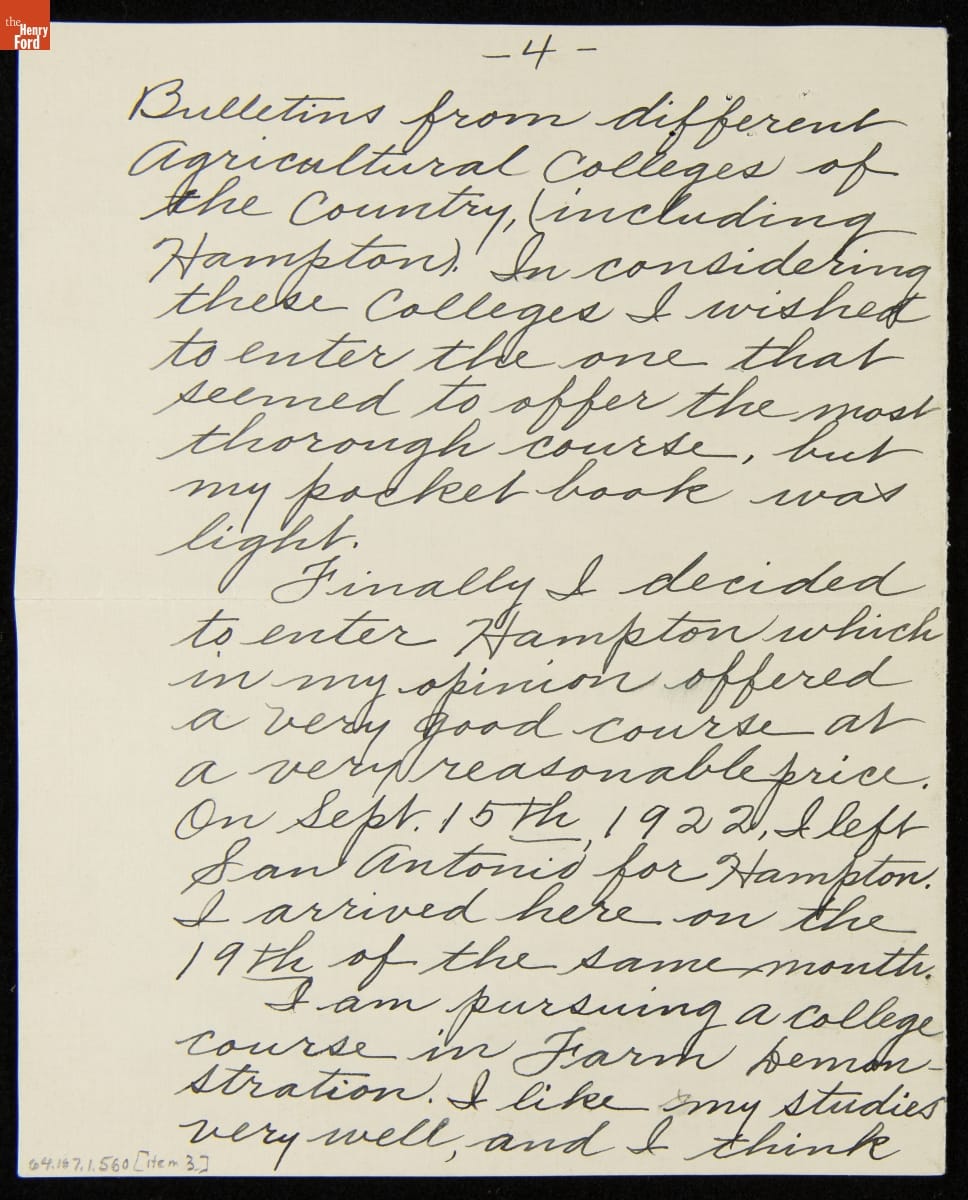 the
Henry
Ford
- 4 -
Bulletins from different
Agricultural Colleges of
the Country, (including
Hampton). In considering
these Colleges I wished
to enter the one that
seemed to offer the most
thorough course, but
my pocket book was
light.
Finally I decided
to enter Hampton which
in my opinion offered
a very good course at
a very reasonable price.
On Sept. 15th, 1922, I left
San Antonio for Hampton.
I arrived here on the
19th of the same month.
I am pursuing a college
course in Farm Demon-
stration. I like my studies
very well, and I think
64.167.1.560 [item 3.]